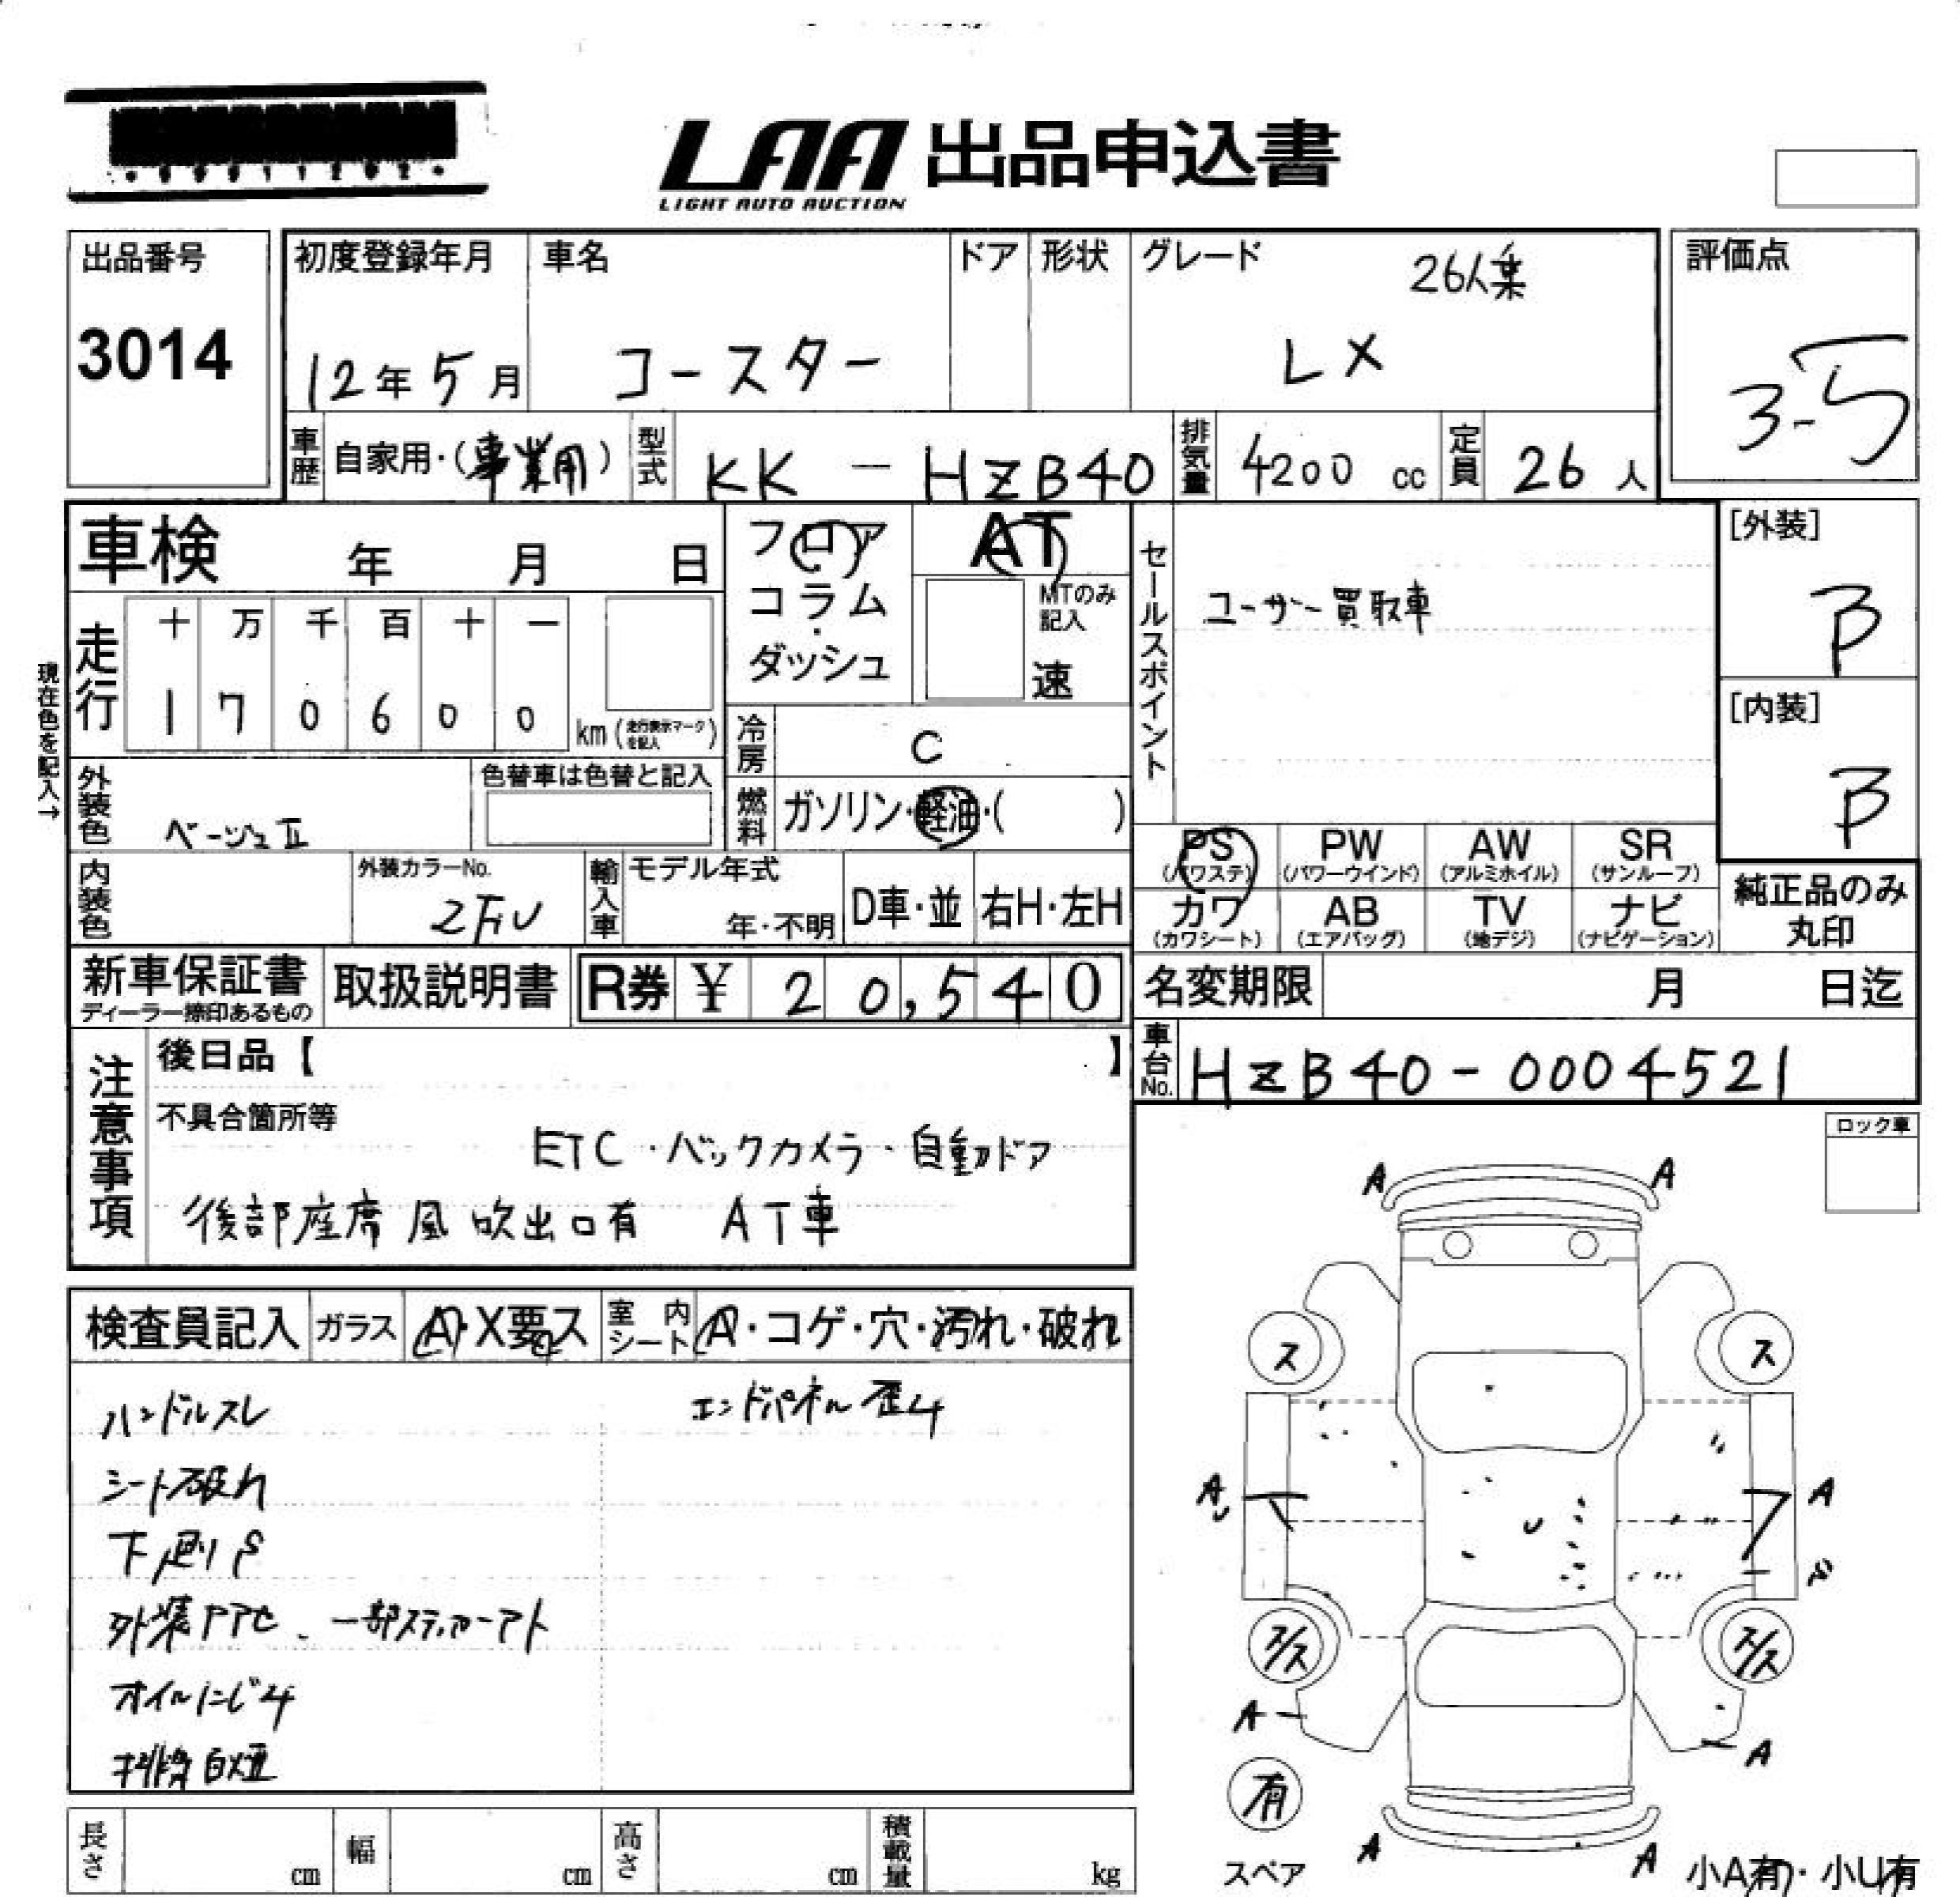 LAA 出品申込書
LIGHT AUTO AUCTION
出品番号
3014
初度登録年月
12年5月
車名
コースター
ドア
形状
グレード
26人乗
LX
評価点
3.5
車歴
自家用・(事業用)
型式
KK - HZB40
排気量
4200 cc
定員
26 人
車検 年 月 日
フロア・コラム・ダッシュ
AT
MTのみ記入
速
セールスポイント
ユーザー買取車
[外装]
B
[内装]
B
現在色を記入→
走行
十 万 千 百 十 一
1 7 0 6 0 0 km (走行表示マークを記入)
冷房
C
外装色
ベージュII
色替車は色替と記入
燃料
ガソリン・軽油・( )
PS (パワステ)
PW (パワーウインド)
AW (アルミホイル)
SR (サンルーフ)
カワ (カワシート)
AB (エアバッグ)
TV (地デジ)
ナビ (ナビゲーション)
純正品のみ丸印
内装色
外装カラーNo.
輸入車
モデル年式
年・不明
D車・並
右H・左H
新車保証書
ディーラー捺印あるもの
取扱説明書
R券 ¥ 20,540
名変期限 月 日迄
車台No.
HZB40-0004521
注意事項
後日品【 】
不具合箇所等
ETC・バックカメラ・自動ドア
後部座席 風吹出口有 AT車
ロック車
検査員記入
ガラス
A・X要ス
室内シート
A・コゲ・穴・汚れ・破れ
ハンドルスレ
エンドパネル歪み
シート破れ
下廻りS
一部ステッカーアト
オイルにじみ
排気白煙
A A
ス ス
A A
U
S
ス/ス ス/ス
A A
有
スペア
A A
小A有・小U有
長さ cm
幅 cm
高さ cm
積載量 kg